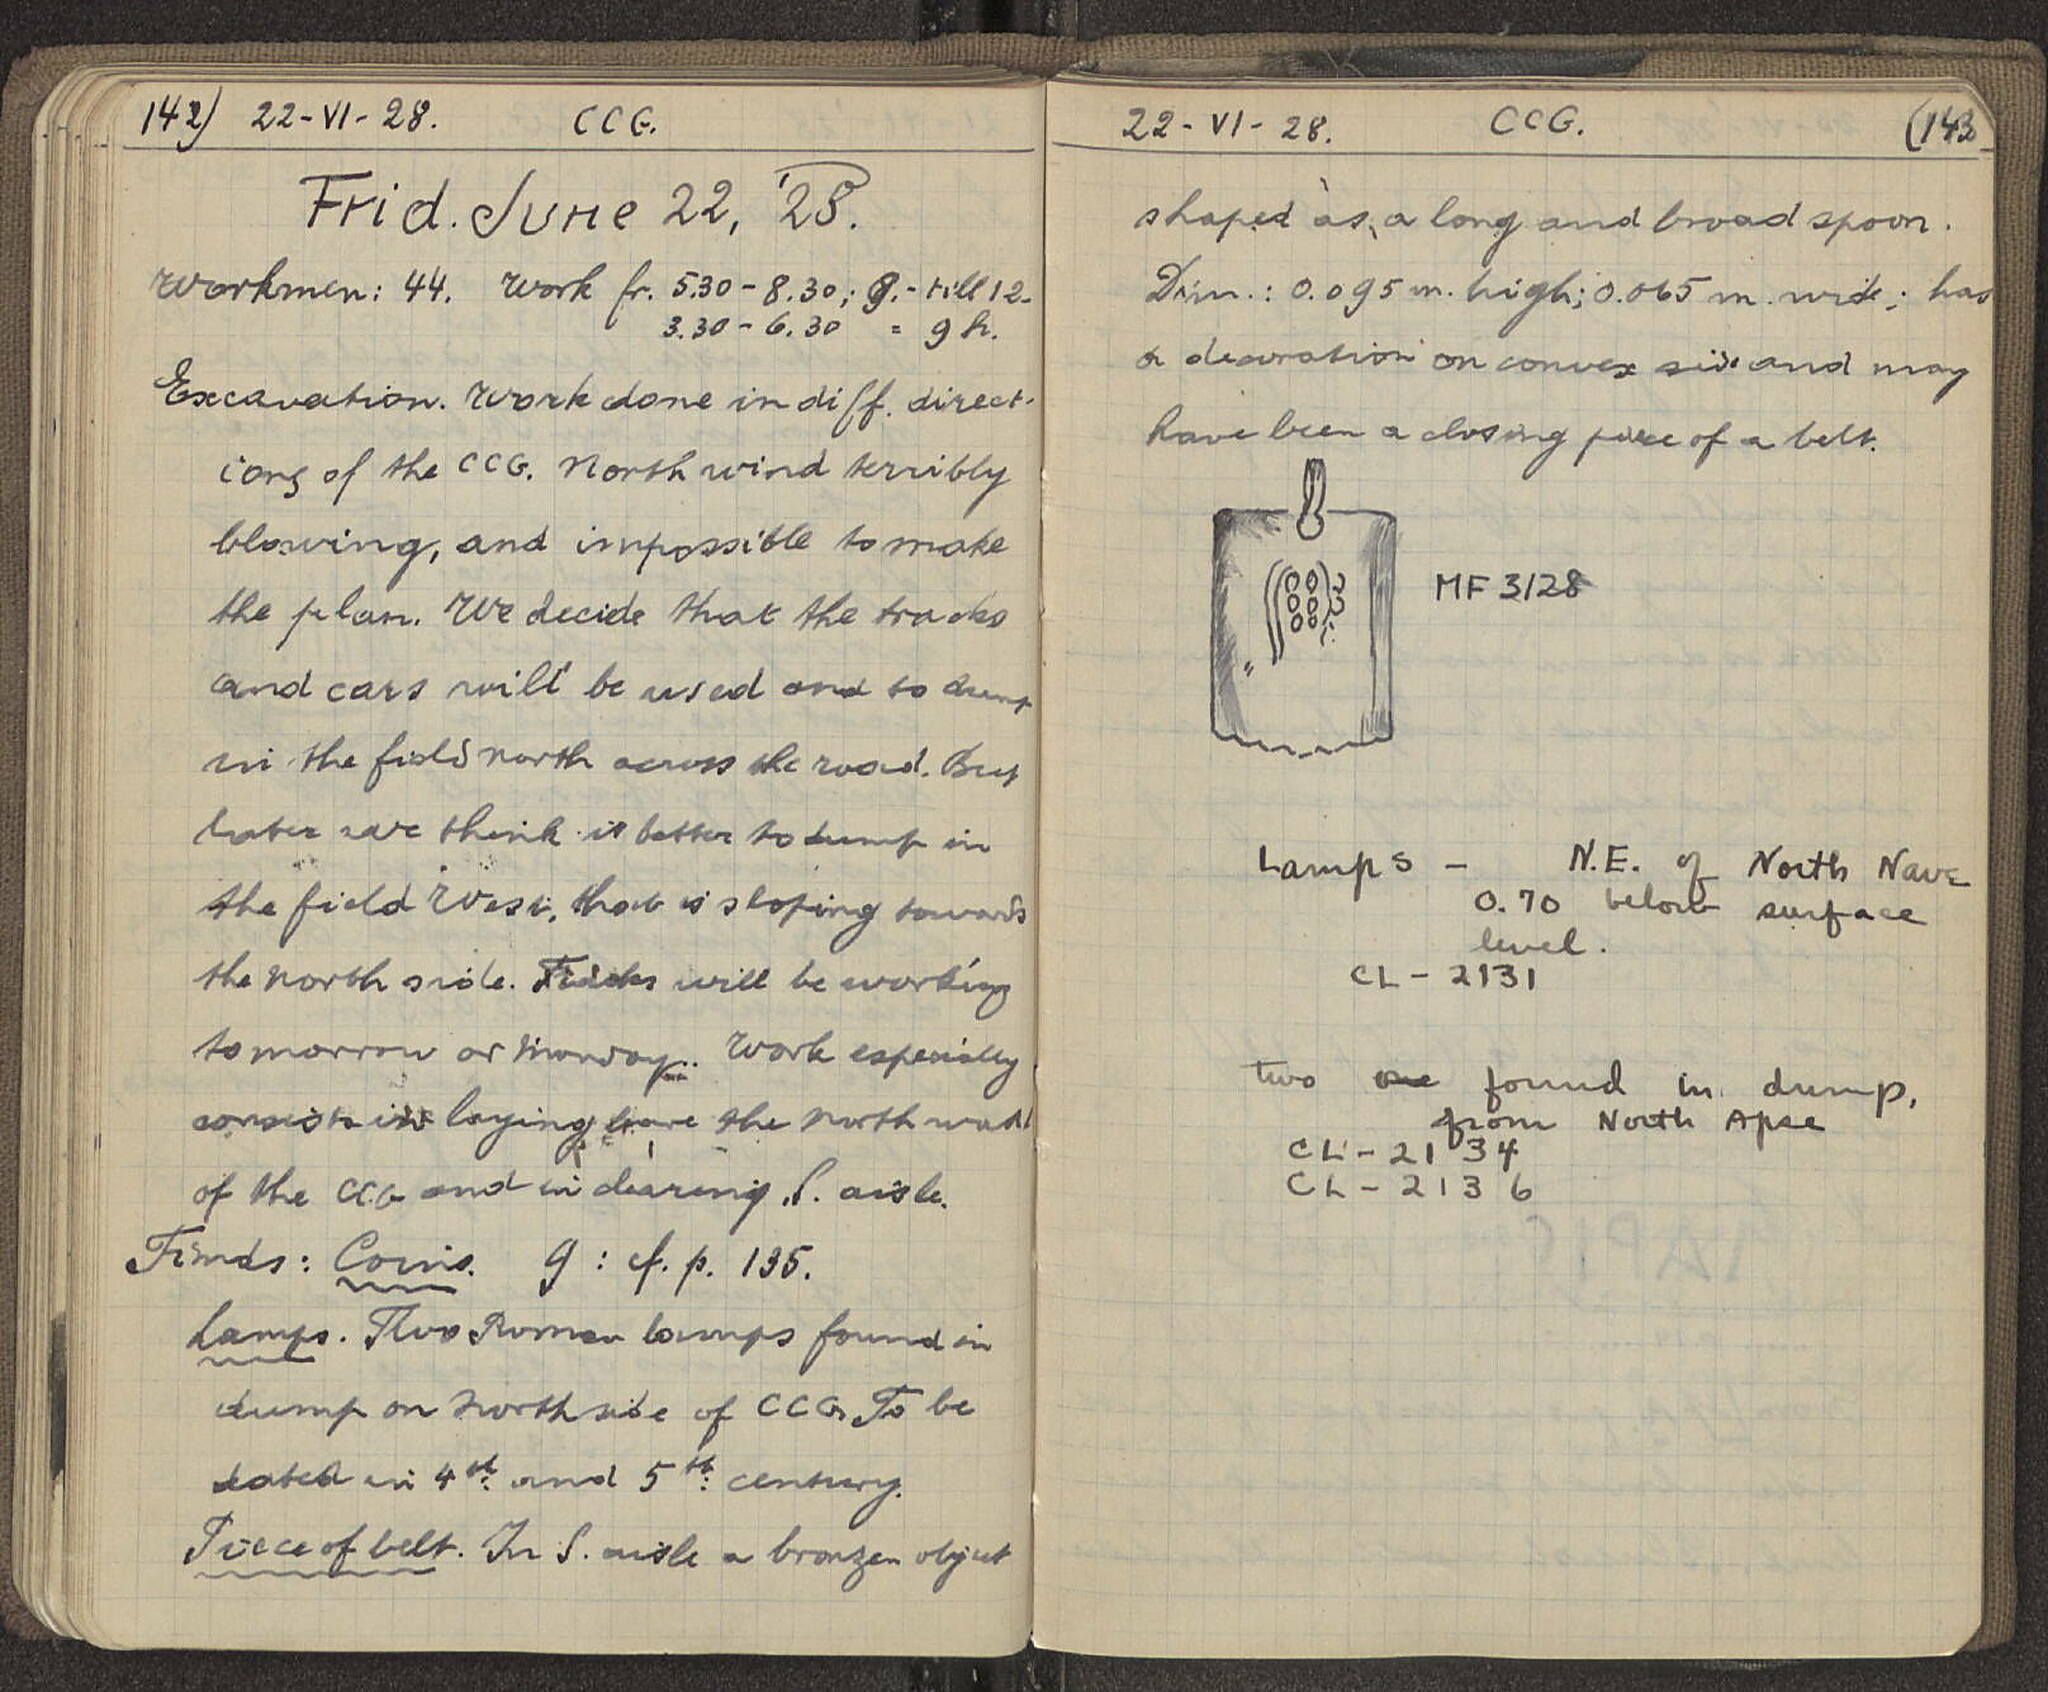 142) 22-VI-28. CCG.
Frid. June 22, '28.
Workmen: 44. Work fr. 5.30-8.30; 9.- till 12-
3.30-6.30 = 9 h.
Excavation. Work done in diff. direct-
ions of the CCG. North wind terribly
blowing, and impossible to make
the plan. We decide that the tracks
and cars will be used and to dump
in the field north across the road. But
later we think it better to dump in
the field West, that is sloping towards
the north side. Tracks will be working
tomorrow or Monday. Work especially
consists in laying bare the north wall
of the CCG and in clearing S. aisle.
Finds: Coins. 9: cf. p. 135.
Lamps. Two Roman lamps found in
dump on north side of CCG. To be
dated in 4th and 5th century.
Piece of belt. In S. aisle a bronzen object
22-VI-28. CCG. (143
shaped as a long and broad spoon.
Dim.: 0.095 m. high; 0.065 m. wide; has
a decoration on convex side and may
have been a closing piece of a belt.
MF 3128
Lamps - N.E. of North Nave
0.70 below surface
level.
CL-2131
two found in dump,
from North Apse
CL-2134
CL-2136